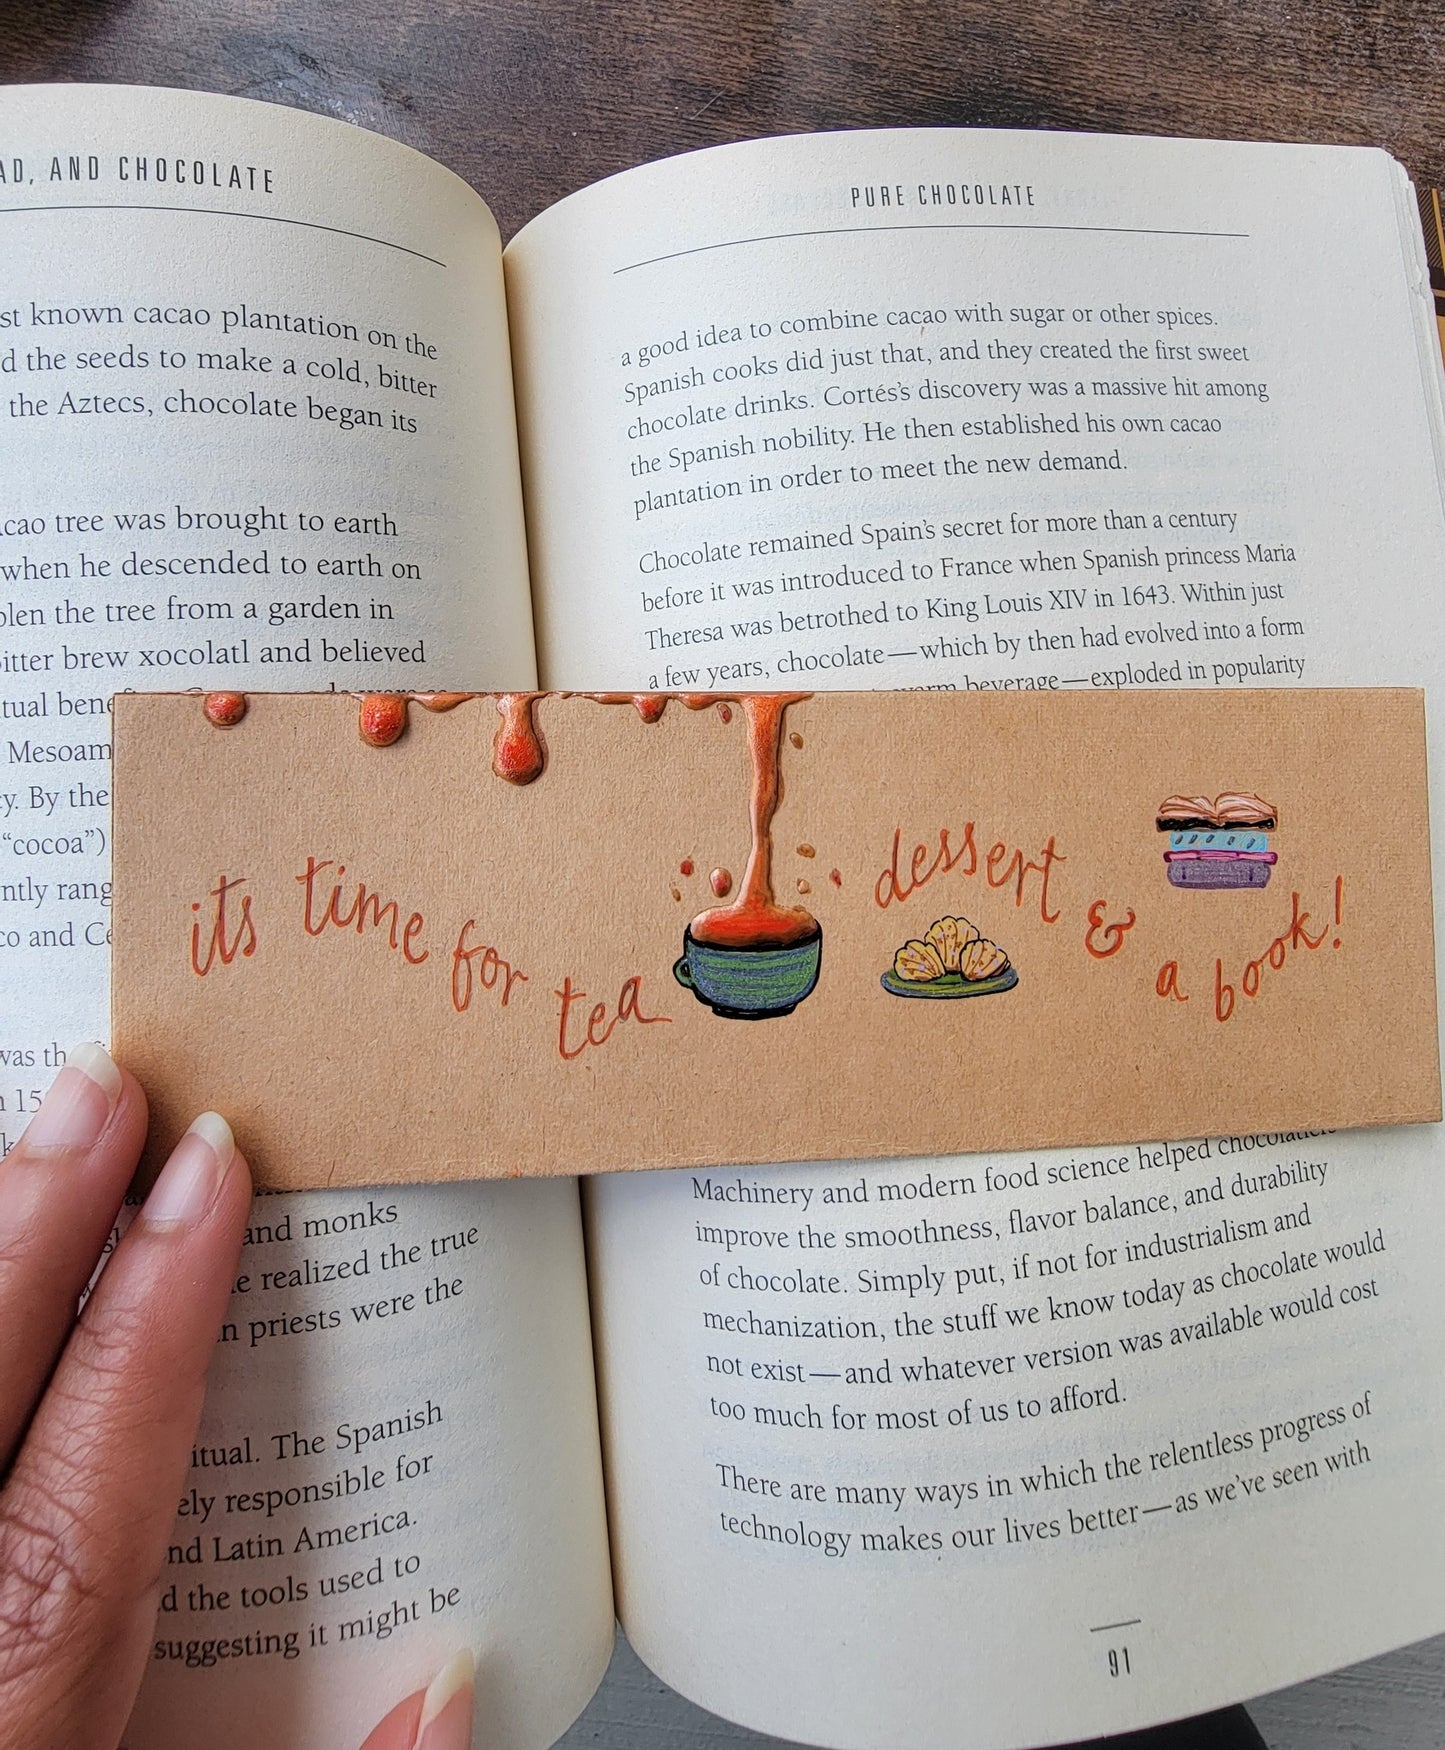 AD, AND CHOCOLATE
st known cacao plantation on the
d the seeds to make a cold, bitter
the Aztecs, chocolate began its
cao tree was brought to earth
when he descended to earth on
olen the tree from a garden in
itter brew xocolatl and believed
tual bene
Mesoam
y. By the
“cocoa”)
ntly rang
co and Ce
was th
n 15
and monks
e realized the true
n priests were the
itual. The Spanish
ely responsible for
nd Latin America.
d the tools used to
suggesting it might be
PURE CHOCOLATE
a good idea to combine cacao with sugar or other spices.
Spanish cooks did just that, and they created the first sweet
chocolate drinks. Cortés’s discovery was a massive hit among
the Spanish nobility. He then established his own cacao
plantation in order to meet the new demand.
Chocolate remained Spain’s secret for more than a century
before it was introduced to France when Spanish princess Maria
Theresa was betrothed to King Louis XIV in 1643. Within just
a few years, chocolate—which by then had evolved into a form
warm beverage—exploded in popularity
its time for tea dessert & a book!
Machinery and modern food science helped chocolatiers
improve the smoothness, flavor balance, and durability
of chocolate. Simply put, if not for industrialism and
mechanization, the stuff we know today as chocolate would
not exist—and whatever version was available would cost
too much for most of us to afford.
There are many ways in which the relentless progress of
technology makes our lives better—as we’ve seen with
91